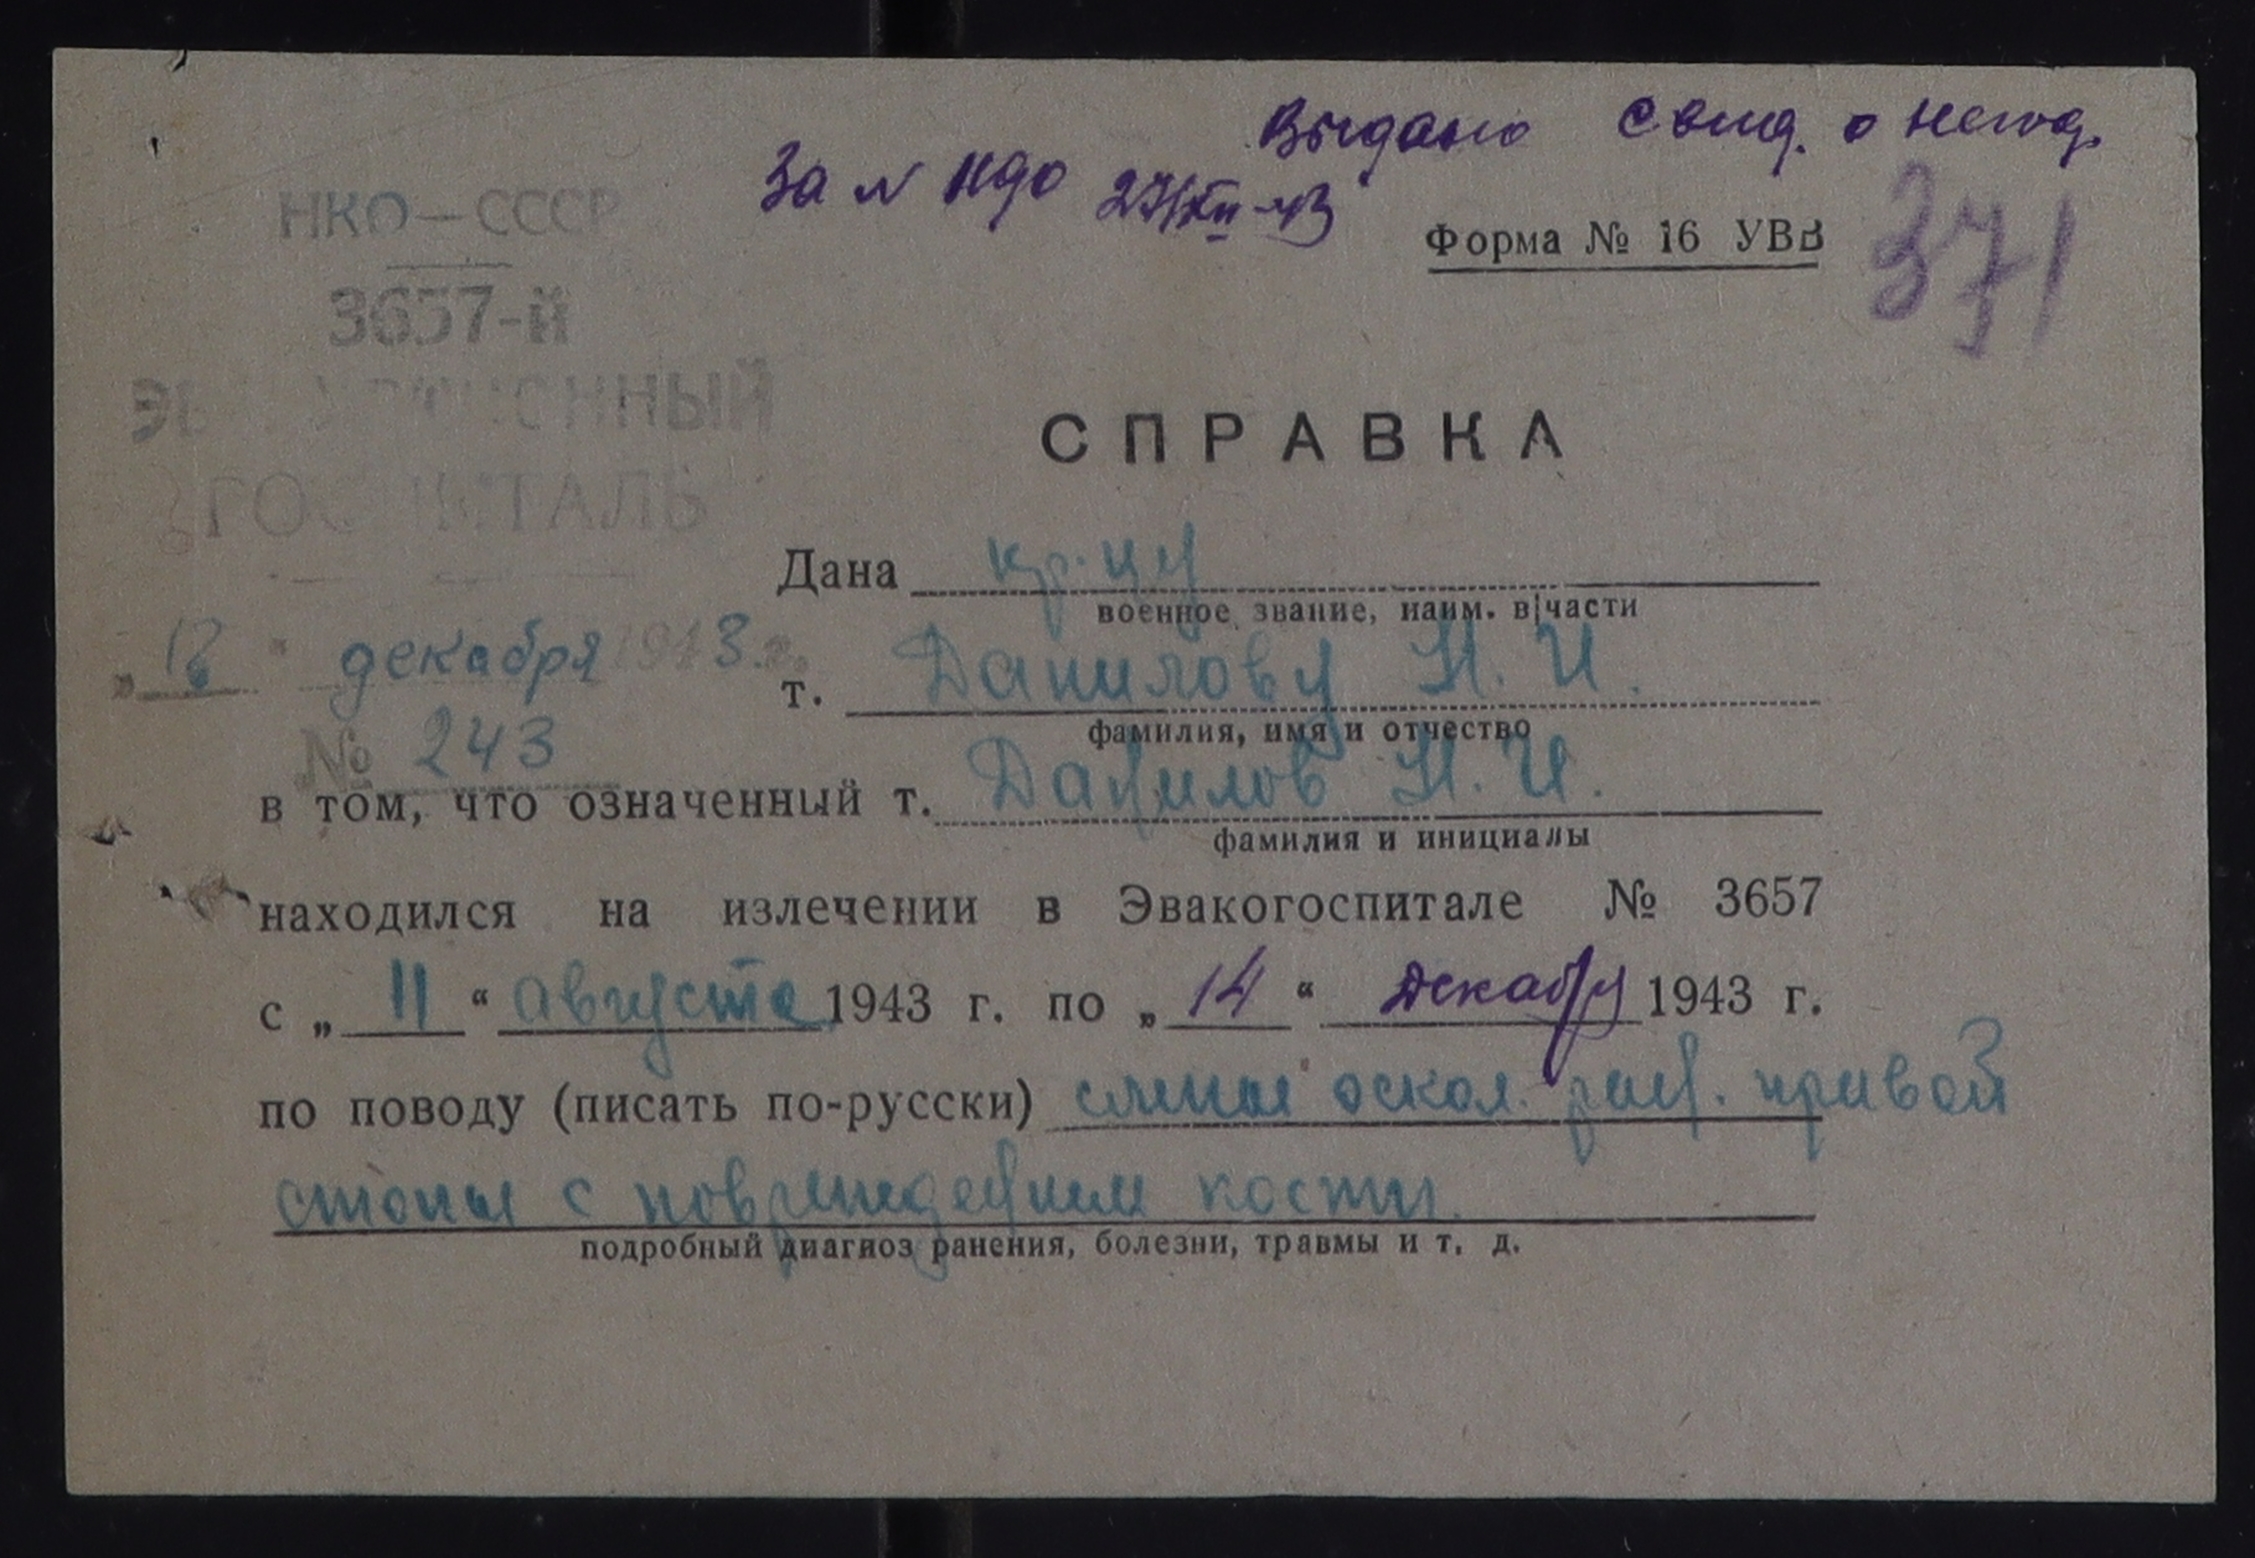 Выдано свид. о негод.
За № 27/XII-43
НКО — СССР
Форма № 16 УВВ
371
3657-й
ЭВАКУАЦИОННЫЙ
ГОСПИТАЛЬ
СПРАВКА
Дана кр-цу
военное звание, наим. в|части
" декабря 1943 г.
т. Данилову Н. И.
фамилия, имя и отчество
№ 243
в том, что означенный т. Данилов Н. И.
фамилия и инициалы
находился на излечении в Эвакогоспитале № 3657
с „ 11 “ августа 1943 г. по „ 14 “ декабря 1943 г.
по поводу (писать по-русски) слепые оскол. ран. правой
стопы с повреждением кости.
подробный диагноз ранения, болезни, травмы и т. д.